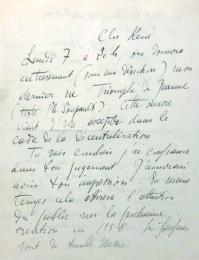 Cher René
Lundi 7 à 20h on donnera
entièrement (sous ma direction) mon
dernier né "Triangle de Jeanne"
(texte Ph. Soupault). Cette œuvre
vient d'être acceptée dans le
cadre de la Décentralisation
Tu sais combien j'ai confiance
dans ton jugement. J'aimerais
avoir ton impression. En même
temps cela attirera l'attention
du public sur la prochaine
création
sont de